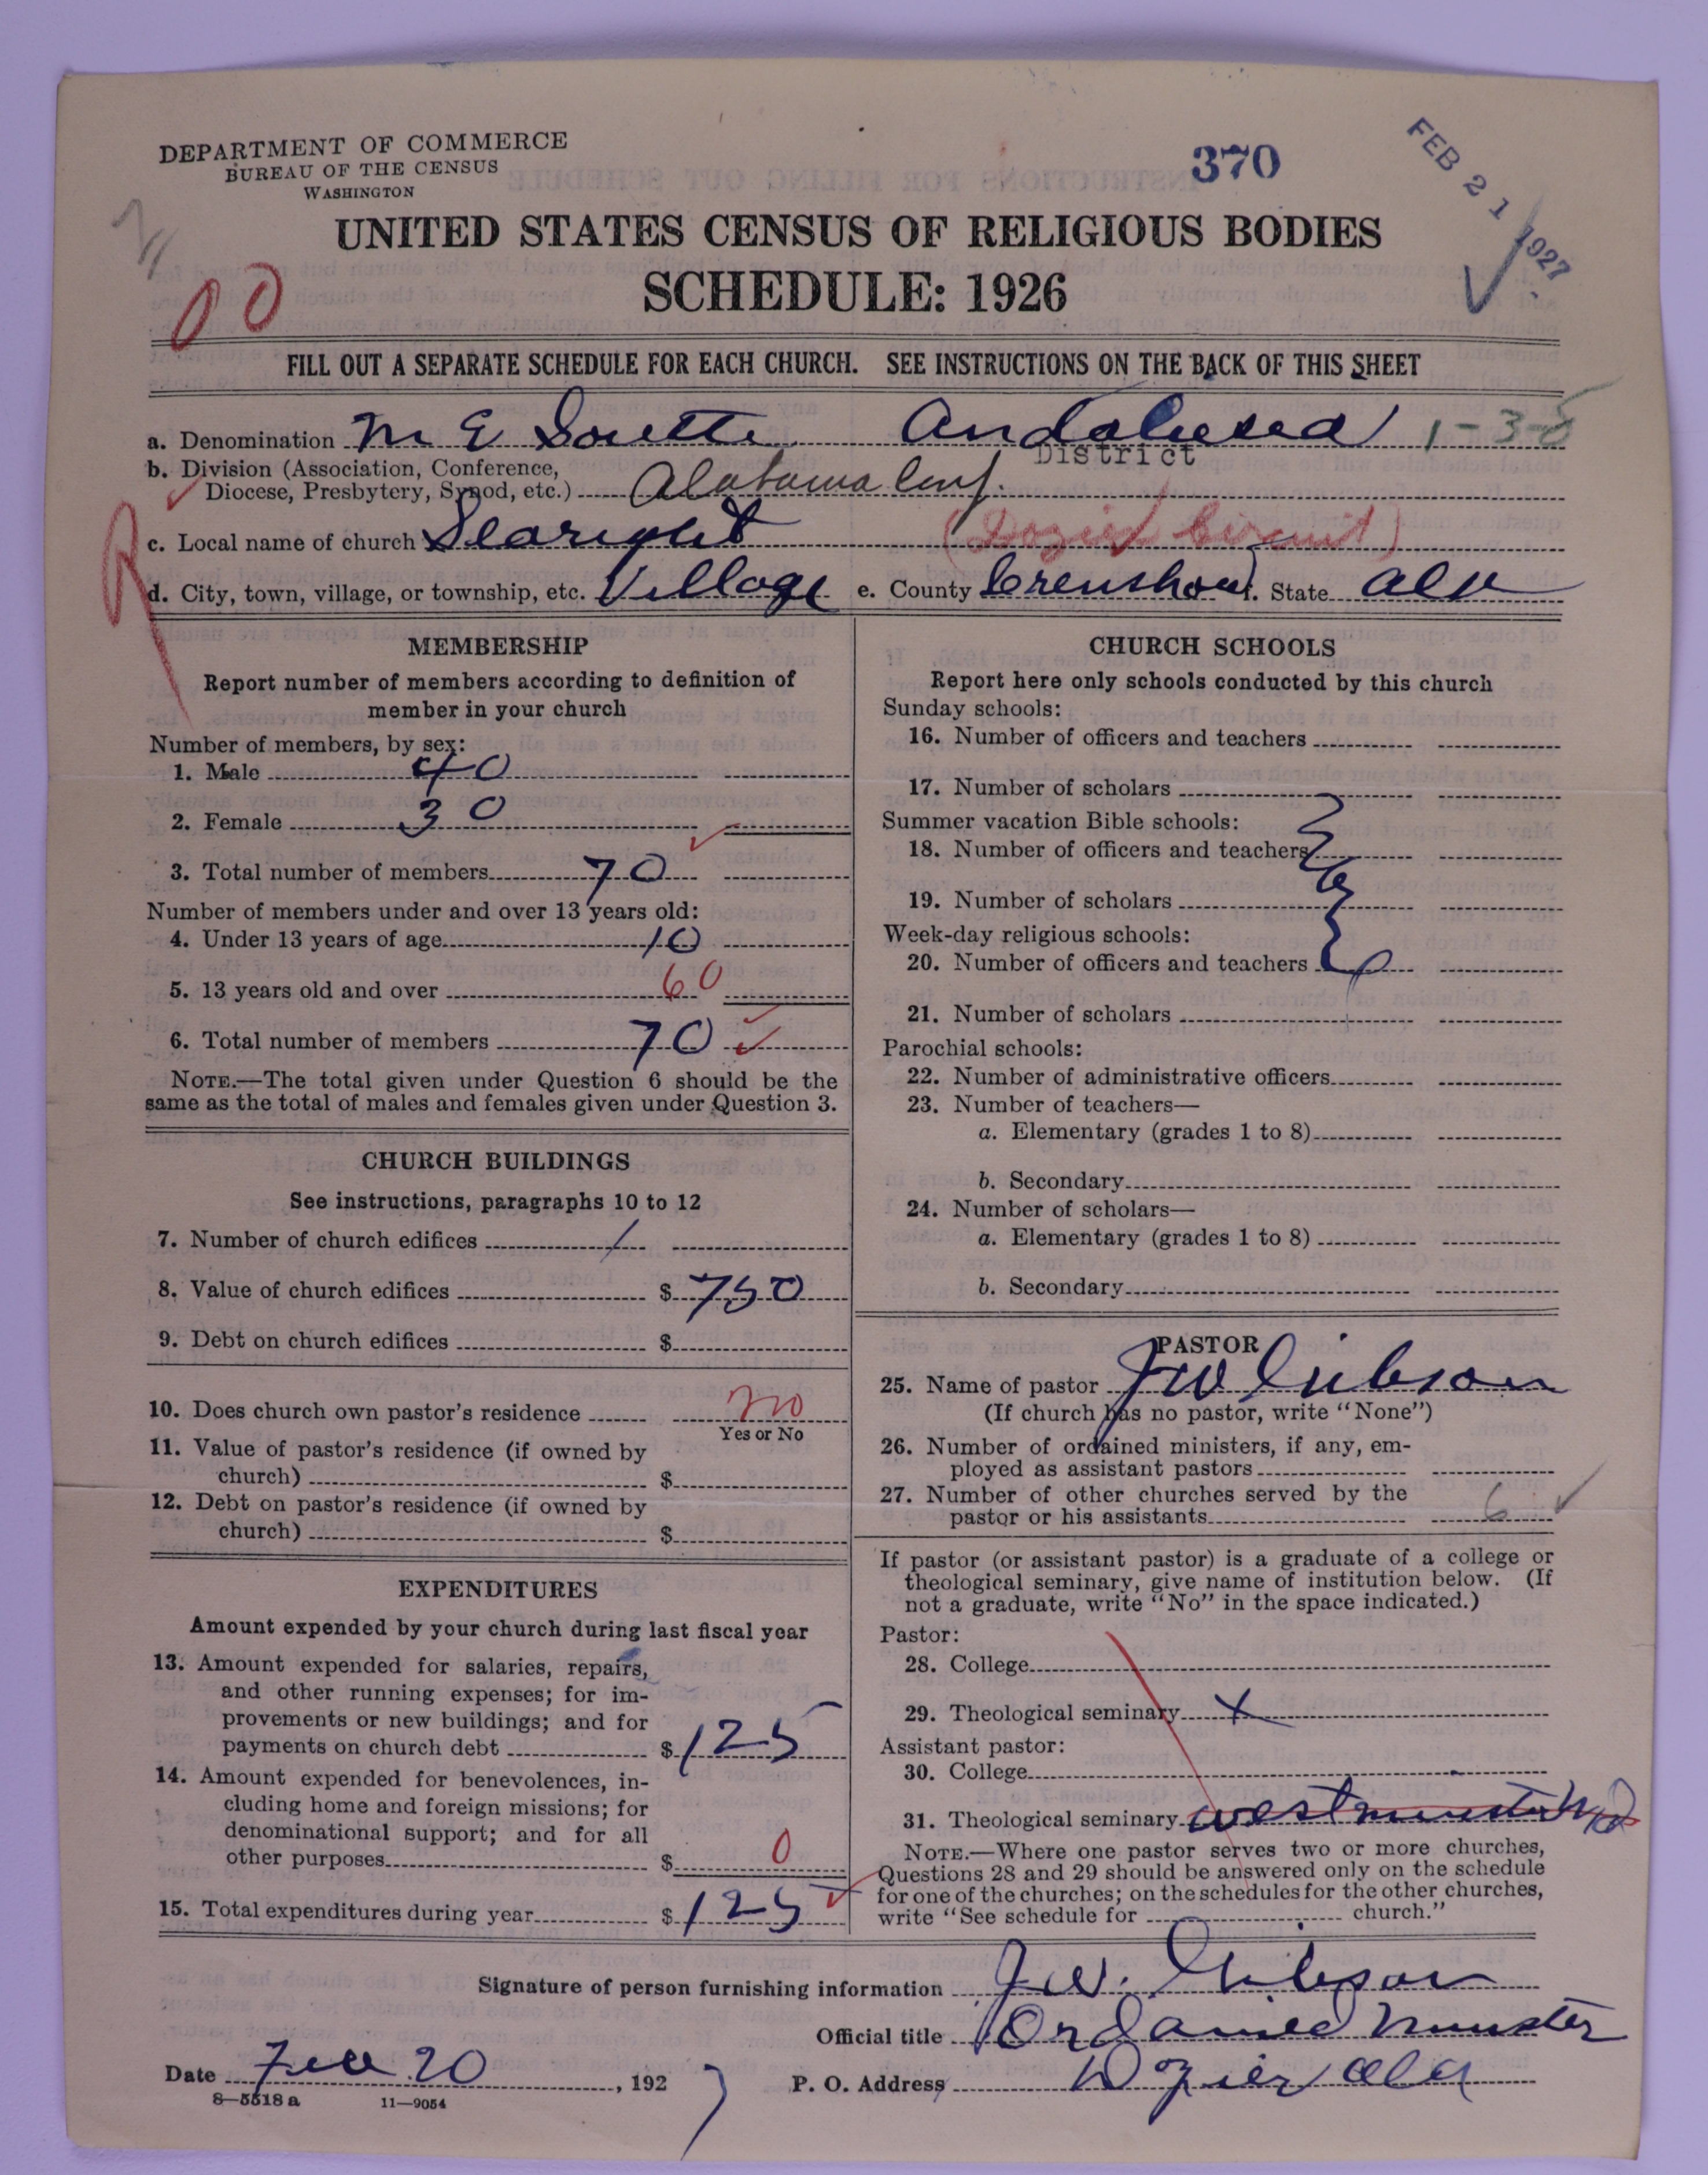 DEPARTMENT OF COMMERCE
BUREAU OF THE CENSUS
WASHINGTON
370
FEB 21 1927
UNITED STATES CENSUS OF RELIGIOUS BODIES
SCHEDULE: 1926
00
FILL OUT A SEPARATE SCHEDULE FOR EACH CHURCH. SEE INSTRUCTIONS ON THE BACK OF THIS SHEET
a. Denomination M E South Andalusia 1-3-8
District
b. Division (Association, Conference,
Diocese, Presbytery, Synod, etc.) Alabama Conf.
R
c. Local name of church Searight (Dozier Circuit)
d. City, town, village, or township, etc. Village e. County Crenshaw f. State Ala
MEMBERSHIP
Report number of members according to definition of
member in your church
Number of members, by sex:
1. Male 40
2. Female 30
3. Total number of members 70
Number of members under and over 13 years old:
4. Under 13 years of age 10
5. 13 years old and over 60
6. Total number of members 70
NOTE.—The total given under Question 6 should be the
same as the total of males and females given under Question 3.
CHURCH BUILDINGS
See instructions, paragraphs 10 to 12
7. Number of church edifices 1
8. Value of church edifices $ 750
9. Debt on church edifices $
10. Does church own pastor's residence no
Yes or No
11. Value of pastor's residence (if owned by
church) $
12. Debt on pastor's residence (if owned by
church) $
EXPENDITURES
Amount expended by your church during last fiscal year
13. Amount expended for salaries, repairs,
and other running expenses; for im-
provements or new buildings; and for
payments on church debt $ 125
14. Amount expended for benevolences, in-
cluding home and foreign missions; for
denominational support; and for all
other purposes $ 0
15. Total expenditures during year $ 125
CHURCH SCHOOLS
Report here only schools conducted by this church
Sunday schools:
16. Number of officers and teachers
17. Number of scholars
Summer vacation Bible schools:
18. Number of officers and teachers
19. Number of scholars
Week-day religious schools:
20. Number of officers and teachers
21. Number of scholars
Parochial schools:
22. Number of administrative officers
23. Number of teachers—
a. Elementary (grades 1 to 8)
b. Secondary
24. Number of scholars—
a. Elementary (grades 1 to 8)
b. Secondary
PASTOR
25. Name of pastor J W Gibson
(If church has no pastor, write "None")
26. Number of ordained ministers, if any, em-
ployed as assistant pastors
27. Number of other churches served by the
pastor or his assistants 6
If pastor (or assistant pastor) is a graduate of a college or
theological seminary, give name of institution below. (If
not a graduate, write "No" in the space indicated.)
Pastor:
28. College
29. Theological seminary X
Assistant pastor:
30. College
31. Theological seminary Westminster Md
NOTE.—Where one pastor serves two or more churches,
Questions 28 and 29 should be answered only on the schedule
for one of the churches; on the schedules for the other churches,
write "See schedule for church."
Signature of person furnishing information J W. Gibson
Official title Ordained Minister
Date Feb 20, 1927 P. O. Address Dozier Ala
8—5518 a 11—9054